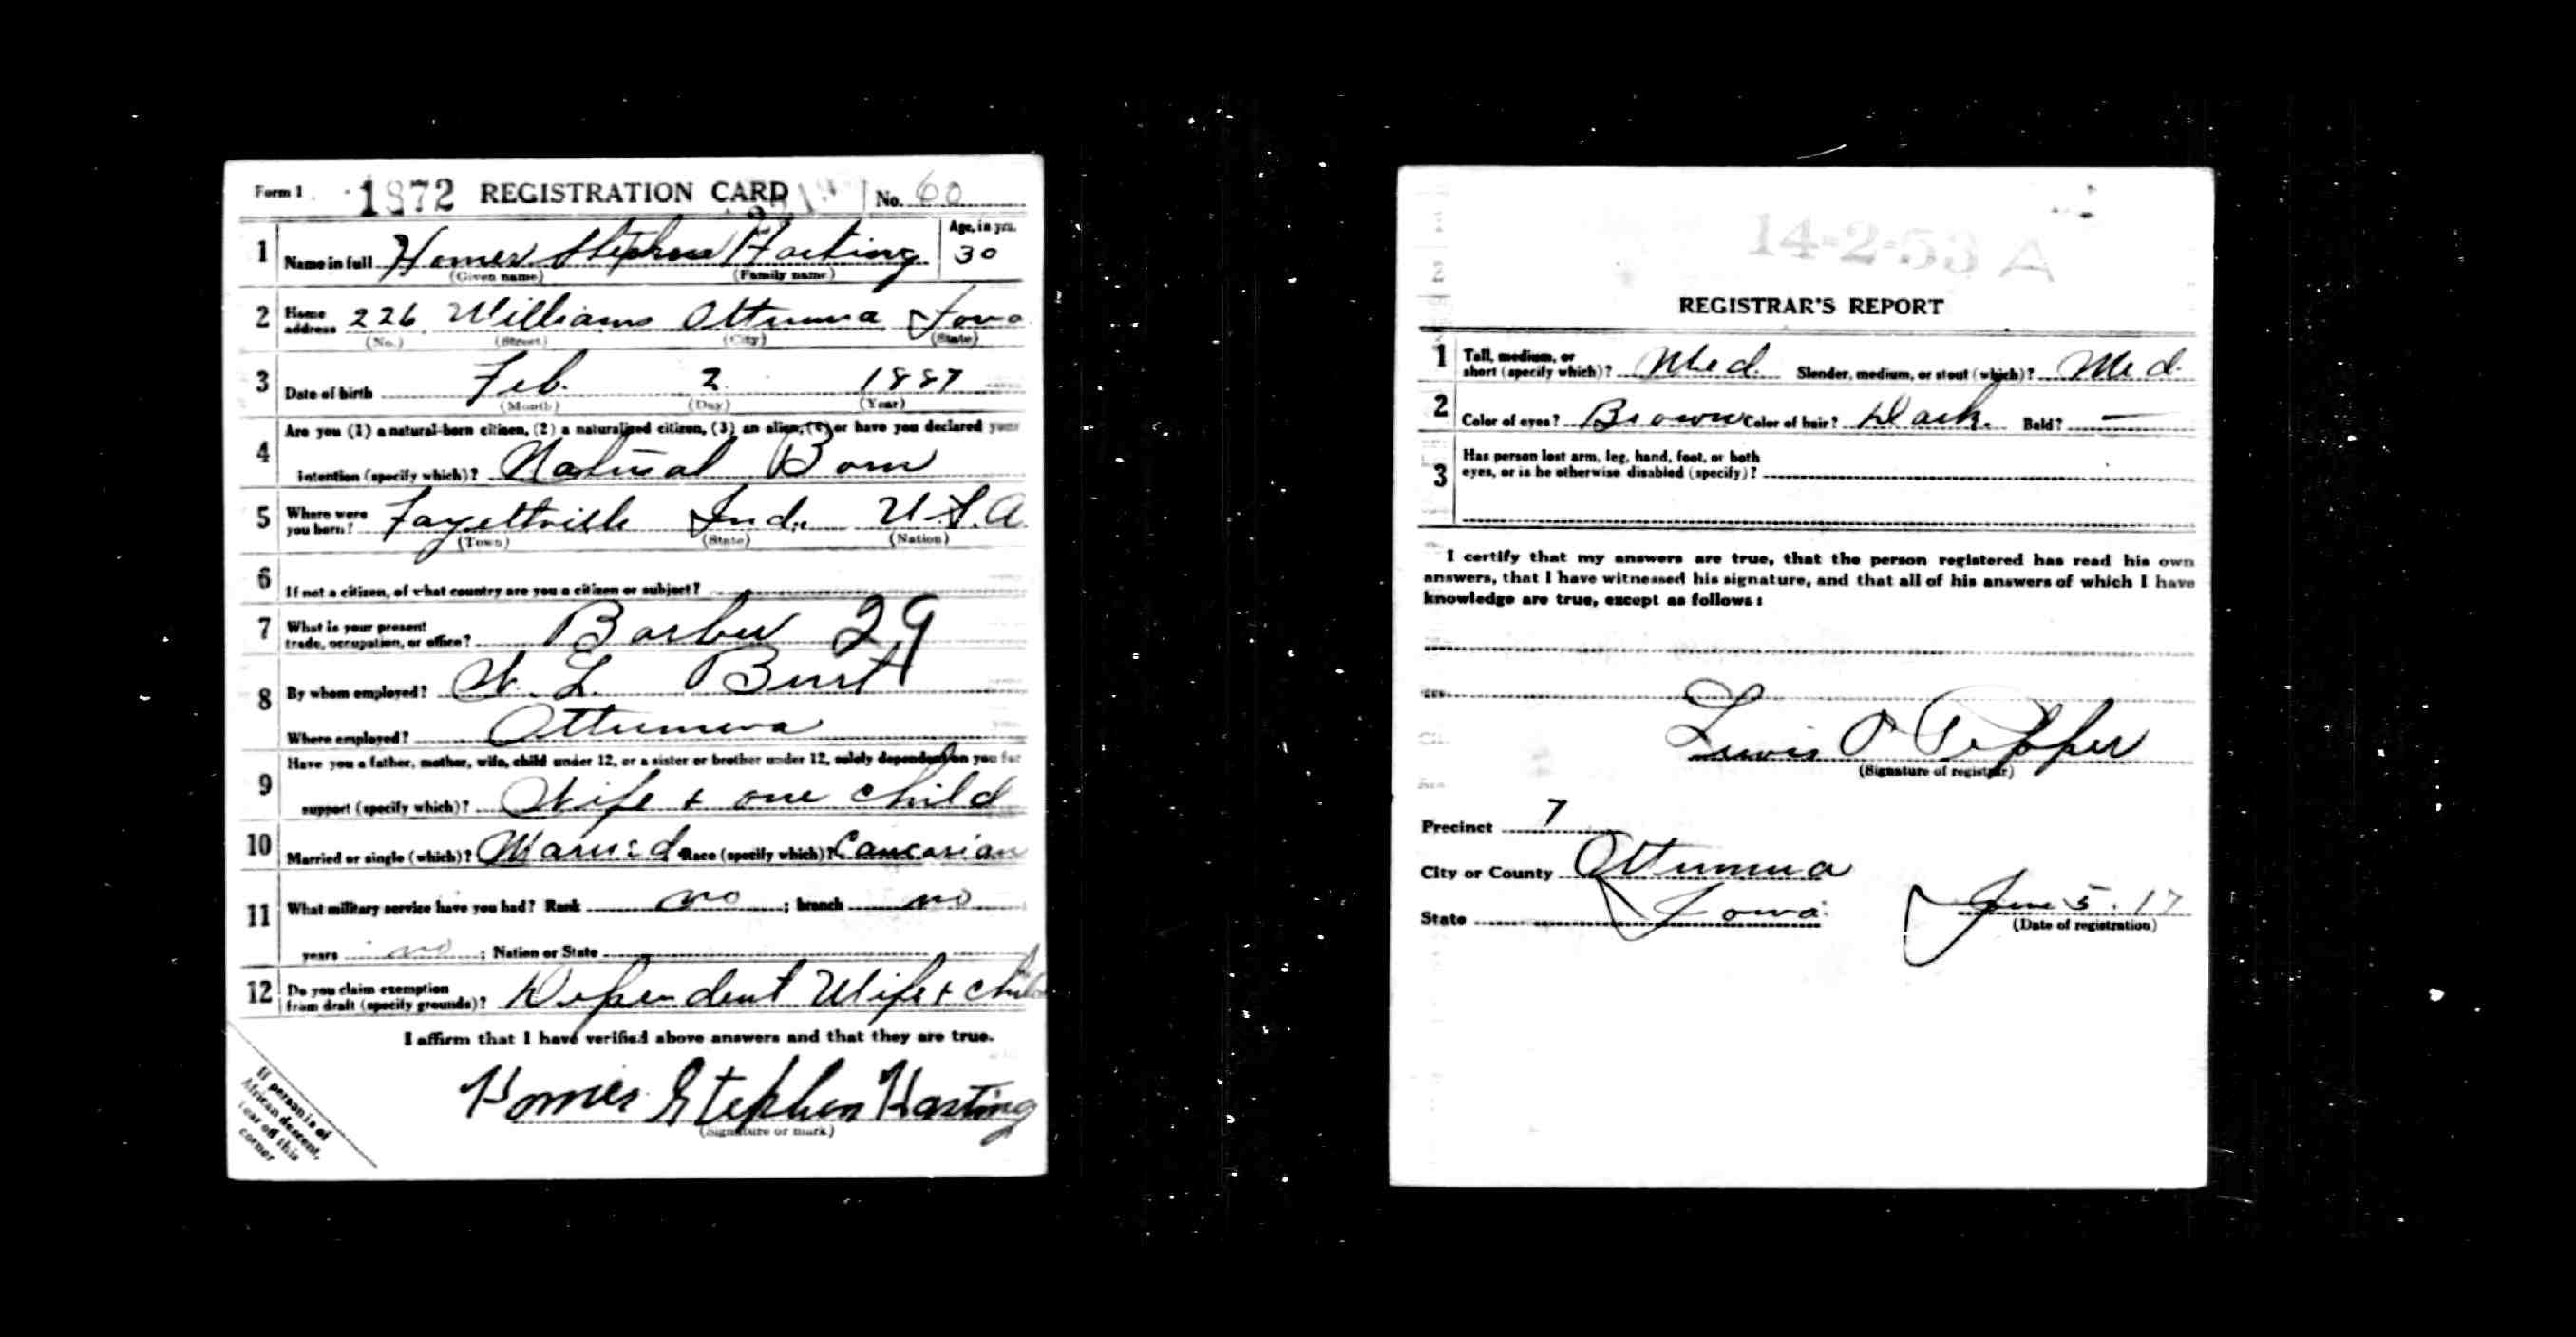 Form 1 1872 REGISTRATION CARD No. 60
1 Name in full Homer Stephen Hasting Age, in yrs. 30
(Given name) (Family name)
2 Home address 226 Williams Ottumwa Iowa
(No.) (Street) (City) (State)
3 Date of birth Feb. 2 1887
(Month) (Day) (Year)
4 Are you (1) a natural-born citizen, (2) a naturalized citizen, (3) an alien, (4) or have you declared your
intention (specify which)? Natural Born
5 Where were you born? Fayettville Ind. U.S.A
(Town) (State) (Nation)
6 If not a citizen, of what country are you a citizen or subject?
7 What is your present trade, occupation, or office? Barber 29
8 By whom employed? W. L. Burt
Where employed? Ottumwa
9 Have you a father, mother, wife, child under 12, or a sister or brother under 12, solely dependent on you for
support (specify which)? Wife + one child
10 Married or single (which)? Married Race (specify which)? Caucasian
11 What military service have you had? Rank no ; branch no
years no ; Nation or State
12 Do you claim exemption from draft (specify grounds)? Dependent Wife + child
I affirm that I have verified above answers and that they are true.
Homer Stephen Hasting
(Signature or mark)
If person is of
African descent,
tear off this
corner
14-2-53 A
REGISTRAR'S REPORT
1 Tall, medium, or short (specify which)? Med. Slender, medium, or stout (which)? Med.
2 Color of eyes? Brown Color of hair? Dark. Bald? —
3 Has person lost arm, leg, hand, foot, or both
eyes, or is he otherwise disabled (specify)?
I certify that my answers are true, that the person registered has read his own
answers, that I have witnessed his signature, and that all of his answers of which I have
knowledge are true, except as follows:
Lewis O Pepper
(Signature of registrar)
Precinct 7
City or County Ottumwa
State Iowa June 5. 17
(Date of registration)